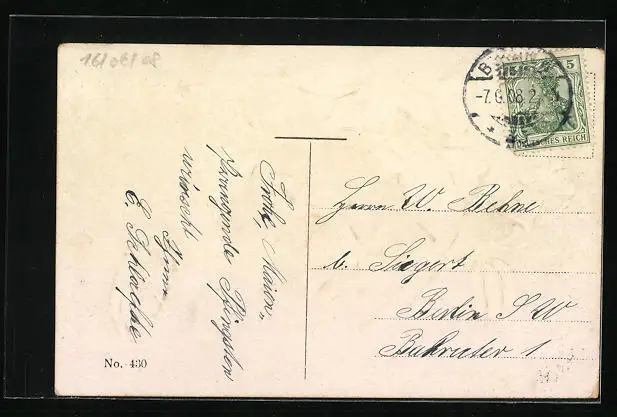 16/06/08
5
-7.6.08 2
DEUTSCHES REICH
Frohe,
Pfingsten
wünscht
Ihnen
E. Schlache
Herrn W. Rehne
b. Siegert
Berlin S W
1
No. 430